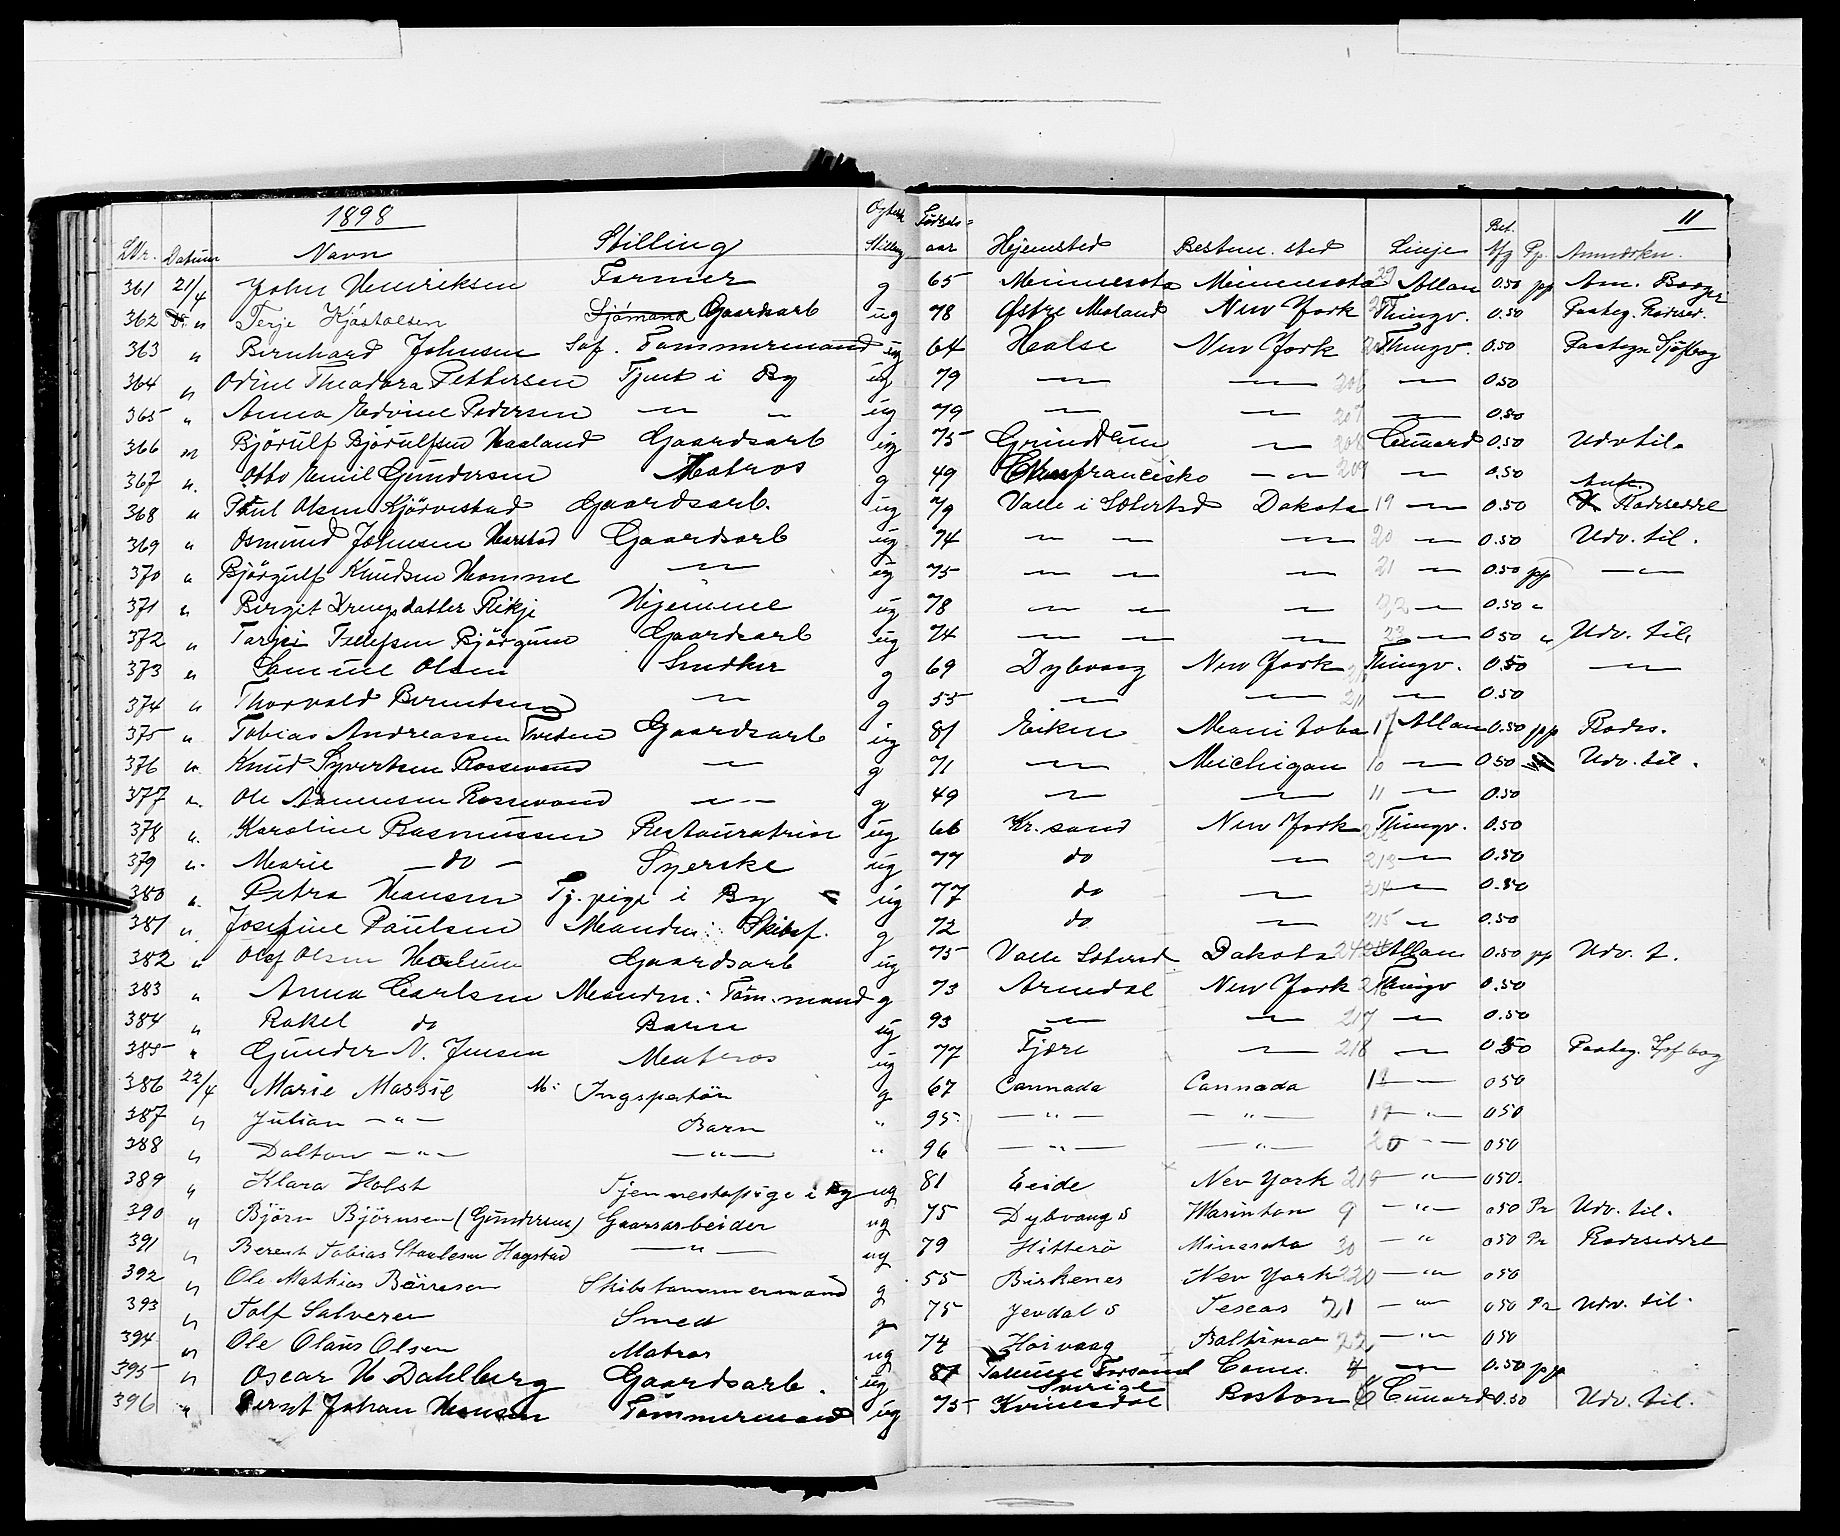 1898 11
LNr. Datum Navn Stilling Fødsels= aar Hjemsted Bestem. sted Linje Bet. Pp. Anmærkn.
361 21/4 John Henriksen Farmer g 65 Minnesota Minnesota 29 Allan 0.50 pp Am. Borger
362 " Terje Kjøstolsen Sjømand Gaardsarb ug 78 Østre Moland New York Thingv. 0.50 Paateg. Rodesed.
363 " Bernhard Johnsen Søf. Tømmermand ug 64 Halse New York Thingv. 0.50 Paategn Sjøfbog
364 " Odine Theodora Pettersen Tjent i By ug 79 — — 206 — 0.50
365 " Anna Edvine Pedersen — " ug 79 — — 207 — 0.50
366 " Bjørulf Bjørulfsen Haaland Gaardsarb ug 75 Grindum — 208 Cunard 0.50 Udv til.
367 " Otto Emil Gundersen Matros g 49 — " — 209 — 0.50
368 " Paul Olsen Kjørvestad Gaardsarb. ug 79 Valle i Sætersd Dakota 19 — 0.50 Rodeseddel
369 " Osmund Johnsen Harstad Gaardsarb ug 74 — — — 20 — 0.50 Udv. til.
370 " Bjørgulf Knudsen Homme — ug 75 — — — 21 — 0.50 pp — " —
371 " Birgit Drengsdatter Rikje Hjemme ug 78 — — — 22 — 0.50 "
372 " Targei Tellefsen Bjørgum Gaardsarb ug 74 — — — 23 — 0.50 " Udv. til.
373 " Samuel Olsen Snedker g 69 Dybvaag New York Thingv. 0.50 —
374 " Thorvald Berntsen — g 55 — — 211 — 0.50
375 " Tobias Andreassen Tveden Gaardsarb ug 81 Eiken Manitoba 1 Allan 0.50 pp Rodes.
376 " Knud Syvertsen Rossevand — g 71 — Michigan 10 — 0.50 Udv. til.
377 " Ole Aanensen Rossevand — " — g 49 — — 11 — 0.50
378 " Karoline Rasmussen Restauratrise ug 66 Kr.sand New York 212 Thingv. 0.50
379 " Marie — do — Syerske ug 77 do — 213 — 0.50
380 " Petra Hansen Tj. pige i By ug 77 do — 214 — 0.50
381 " Josefine Paulsen Manden: Skibsf. g 72 do — 215 " 0.50
382 " Olaf Olsen Haalum Gaardsarb ug 75 Valle Sætersd. Dakota 24 Allan 0.50 pp Udv. t.
383 " Anna Carlsen Manden: Tøm.mand g 73 Arndal New York 216 Thingv 0.50
384 " Rakel do Barn ug 93 — — 217 — 0.50
385 " Gunder N. Jensen Matros ug 77 Fjære — 218 — 0.50 Paateg. Sjøfbog
386 22/4 Marie Massie M: Ingspektør g 67 Cannada Cannada 18 — 050
387 " Julian — " — Barn " 95 — " — — " — 19 — " 050
388 " Dalton — " — — " — " 96 — " — — " — 20 " — 050
389 " Klara Holst Tjennestepige i By ug 81 Eeide New York 219 — " — 050.
390 " Bjørn Bjørnsen (Gundersen) Gaarsarbeider ug 75 Dybvaag s Warinton 9 — " — 050 Pr Udv. til.
391 " Berent Tobias Staalesen Hagstad — " — ug 79 Hitterø Minesota 30 — " 050 Pr Rodeseddel
392 " Ole Mathias Børresen Skibstømmermand g 55 Birkenes New York 220 — " — 050
393 " Tolf Salvesen Smed g 75 Jevdal s Texas 21 — " — 050 Pr Udv. til.
394 " Ole Olaus Olsen Matros ug 74 Høivaag Baltimor 22 — " — 050
395 " Oscar H Dahlberg Gaardsarb. ug 87 Sverige Conn. 4 — 0.50 pp
396 " Bernt Johan Hansen Tømmermand ug 75 Kvinesdal Boston 6 Cunard 0.50 Udv. til.